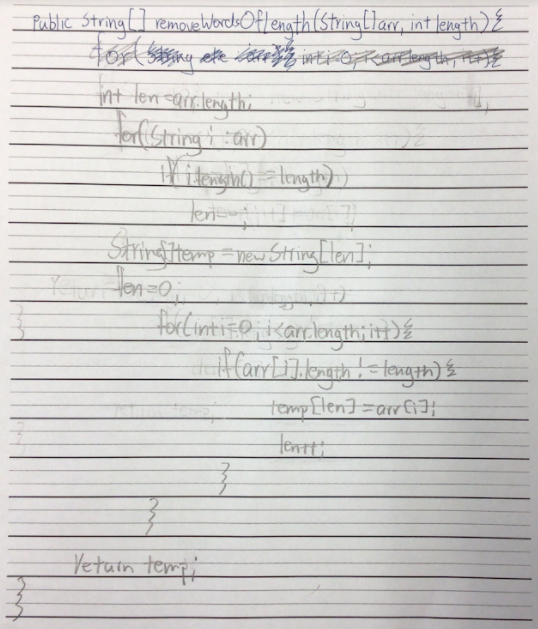 Public String[] removeWordsOfLength(String[] arr, int length){
int len =arr.length;
for(String i : arr)
if(i.length() == length)
len--;
String[] temp = new String[len];
len=0;
for(int i=0; i<arr.length; i++){
if(arr[i].length != length){
temp[len] = arr[i];
len++;
}
}
return temp;
}